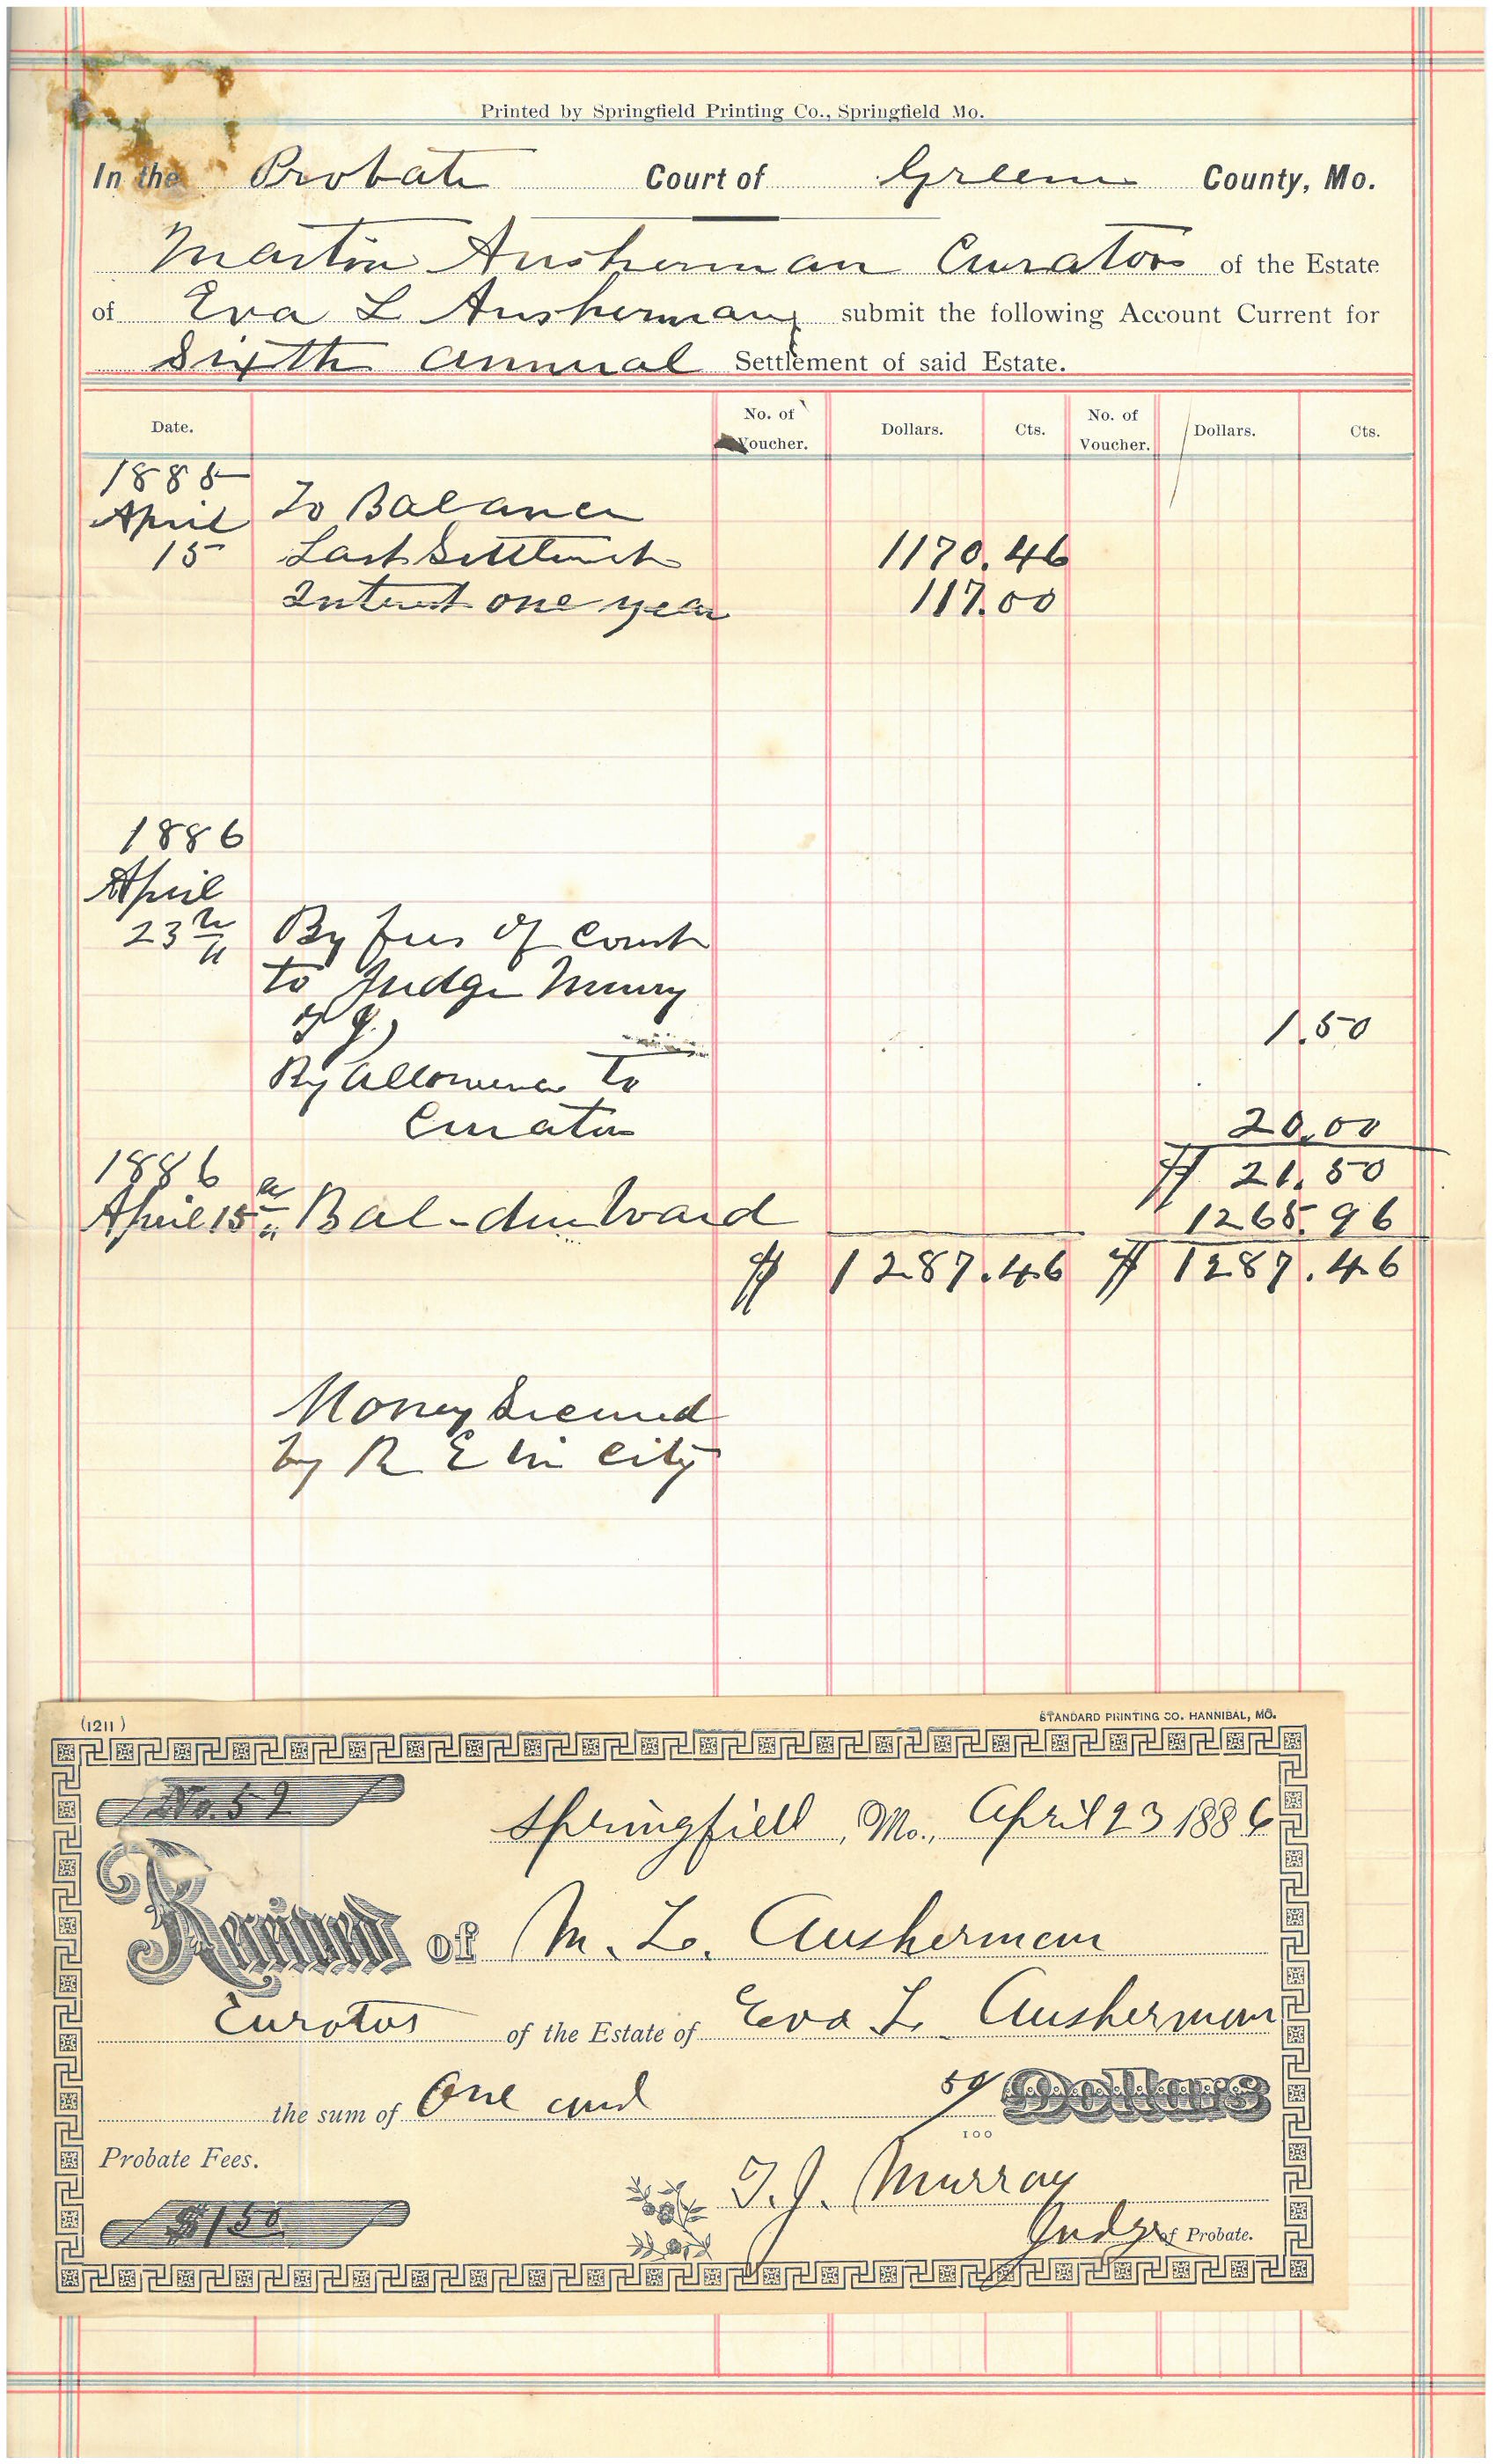 Printed by Springfield Printing Co., Springfield Mo.
In the Probate Court of Greene County, Mo.
Martin Ausherman Curator of the Estate
of Eva L Ausherman submit the following Account Current for
Sixth annual Settlement of said Estate.
Date. No. of Voucher. Dollars. Cts. No. of Voucher. Dollars. Cts.
1885
April To Balance
15 Last Settlment 1170.46
Interest one year 117.00
1886
April
23 By fees of Court
to Judge Murry
T J.) 1.50
By Allowance to
Curator 20.00
1886 $ 21.50
April 15 Bal - due Ward 1265.96
$ 1287.46 $ 1287.46
Money Secured
by R E in City
(1211) STANDARD PRINTING CO. HANNIBAL, MO.
No. 52
Springfield, Mo., April 23 1886
Received of M. L. Ausherman
Curator of the Estate of Eva L. Ausherman
the sum of One and 50/100 Dollars
Probate Fees.
T. J. Murray
$1 50 Judge of Probate.